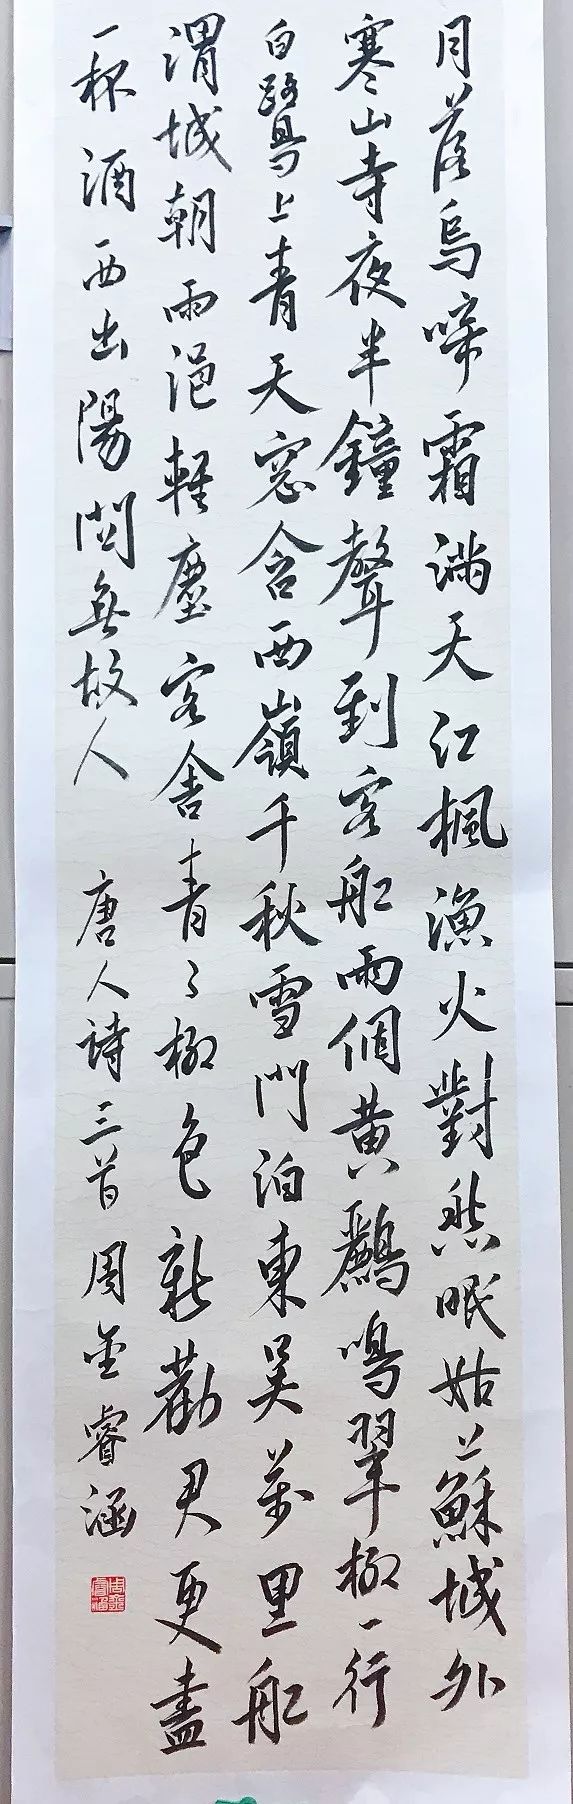 月落烏啼霜滿天江楓漁火對愁眠姑蘇城外
寒山寺夜半鐘聲到客船兩個黃鸝鳴翠柳一行
白鷺上青天窓含西嶺千秋雪門泊東吴萬里船
渭城朝雨浥輕塵客舍青々柳色新勸君更盡
一杯酒西出陽關無故人 唐人詩三首 周金睿涵
周金睿涵